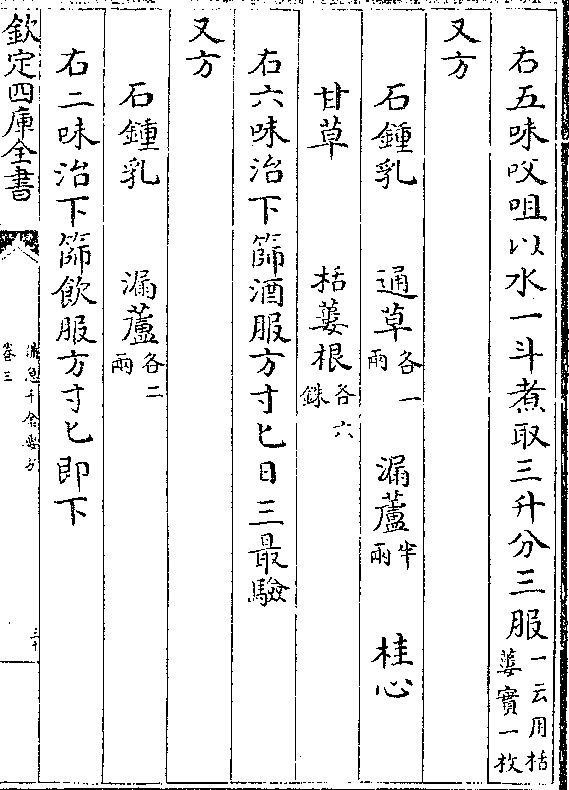 右五味㕮咀以水一斗煮取三升分三服一云用栝蔞實一枚
又方
石鍾乳 通草各一兩 漏蘆半兩 桂心
甘草 栝蔞根各六銖
右六味治下篩酒服方寸匕日三最驗
又方
石鍾乳 漏蘆各二兩
右二味治下篩飲服方寸匕即下
欽定四庫全書 備急千金要方 卷三 三十